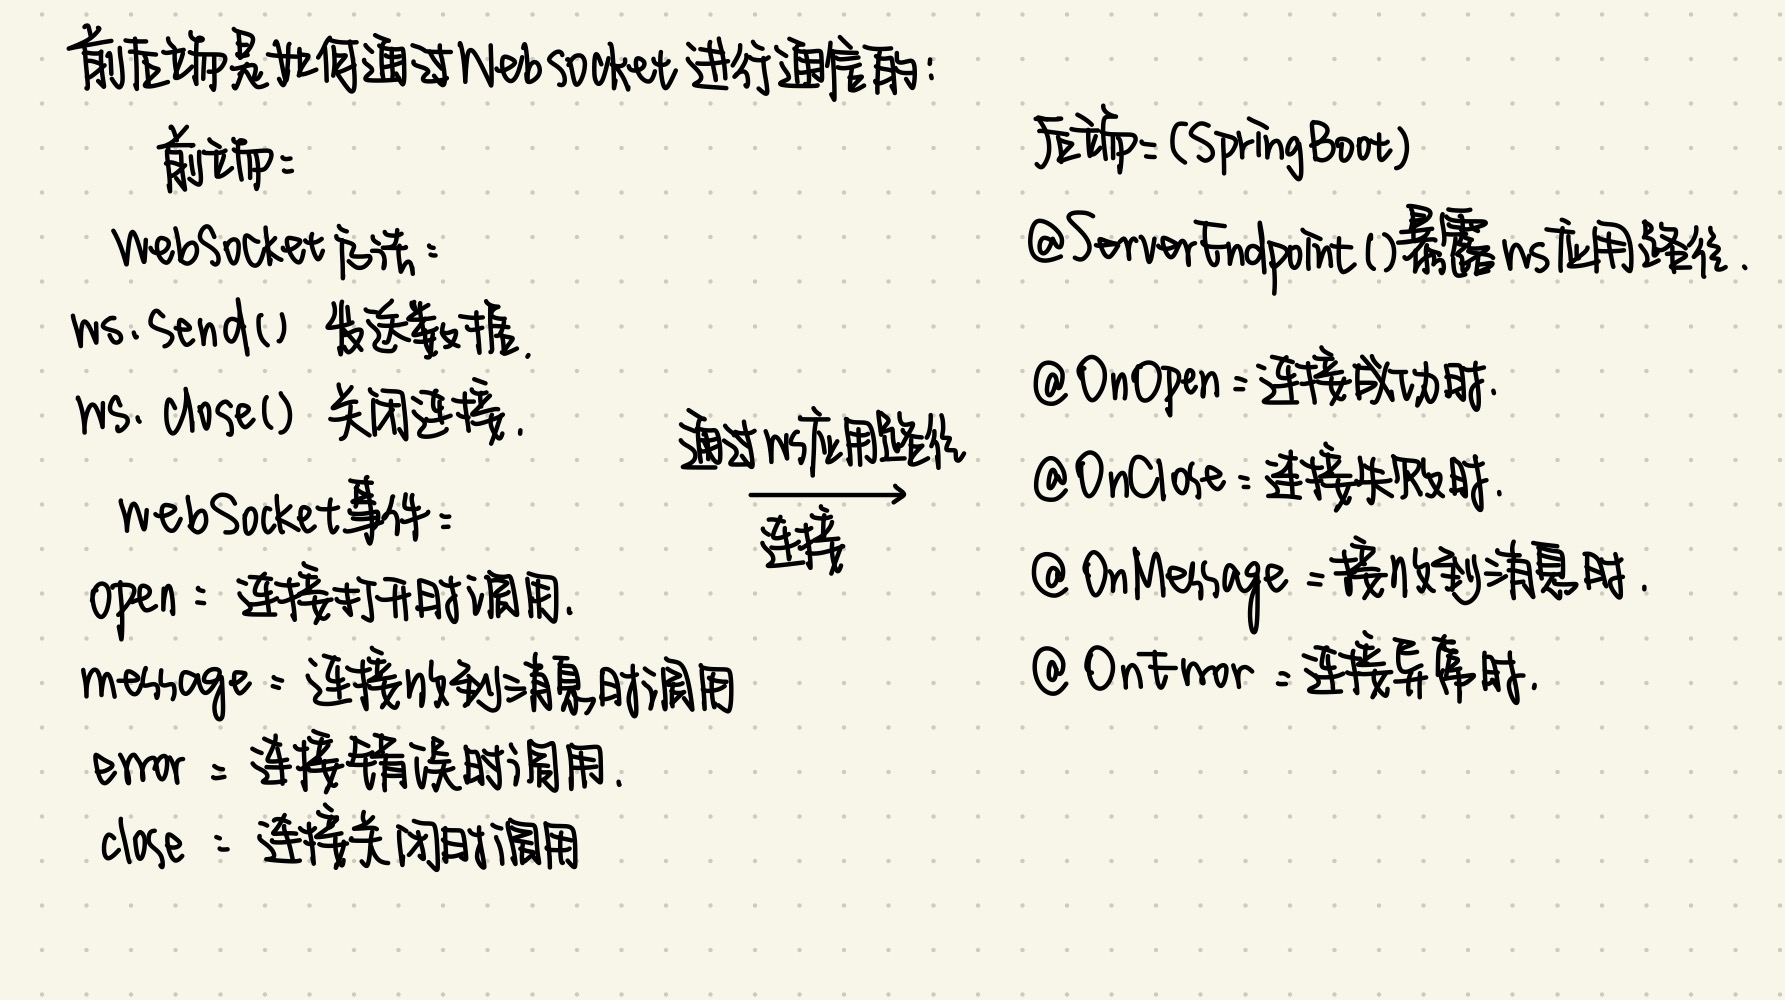 前后端是如何通过Websocket进行通信的:
前端:
WebSocket方法:
ws.send() 发送数据.
ws.close() 关闭连接.
WebSocket事件:
open: 连接打开时调用.
message: 连接收到消息时调用
error: 连接错误时调用.
close: 连接关闭时调用
通过ws应用路径
连接
后端:(SpringBoot)
@ServerEndpoint()暴露ws应用路径.
@OnOpen:连接成功时.
@OnClose:连接失败时.
@OnMessage:接收到消息时.
@OnError:连接异常时.